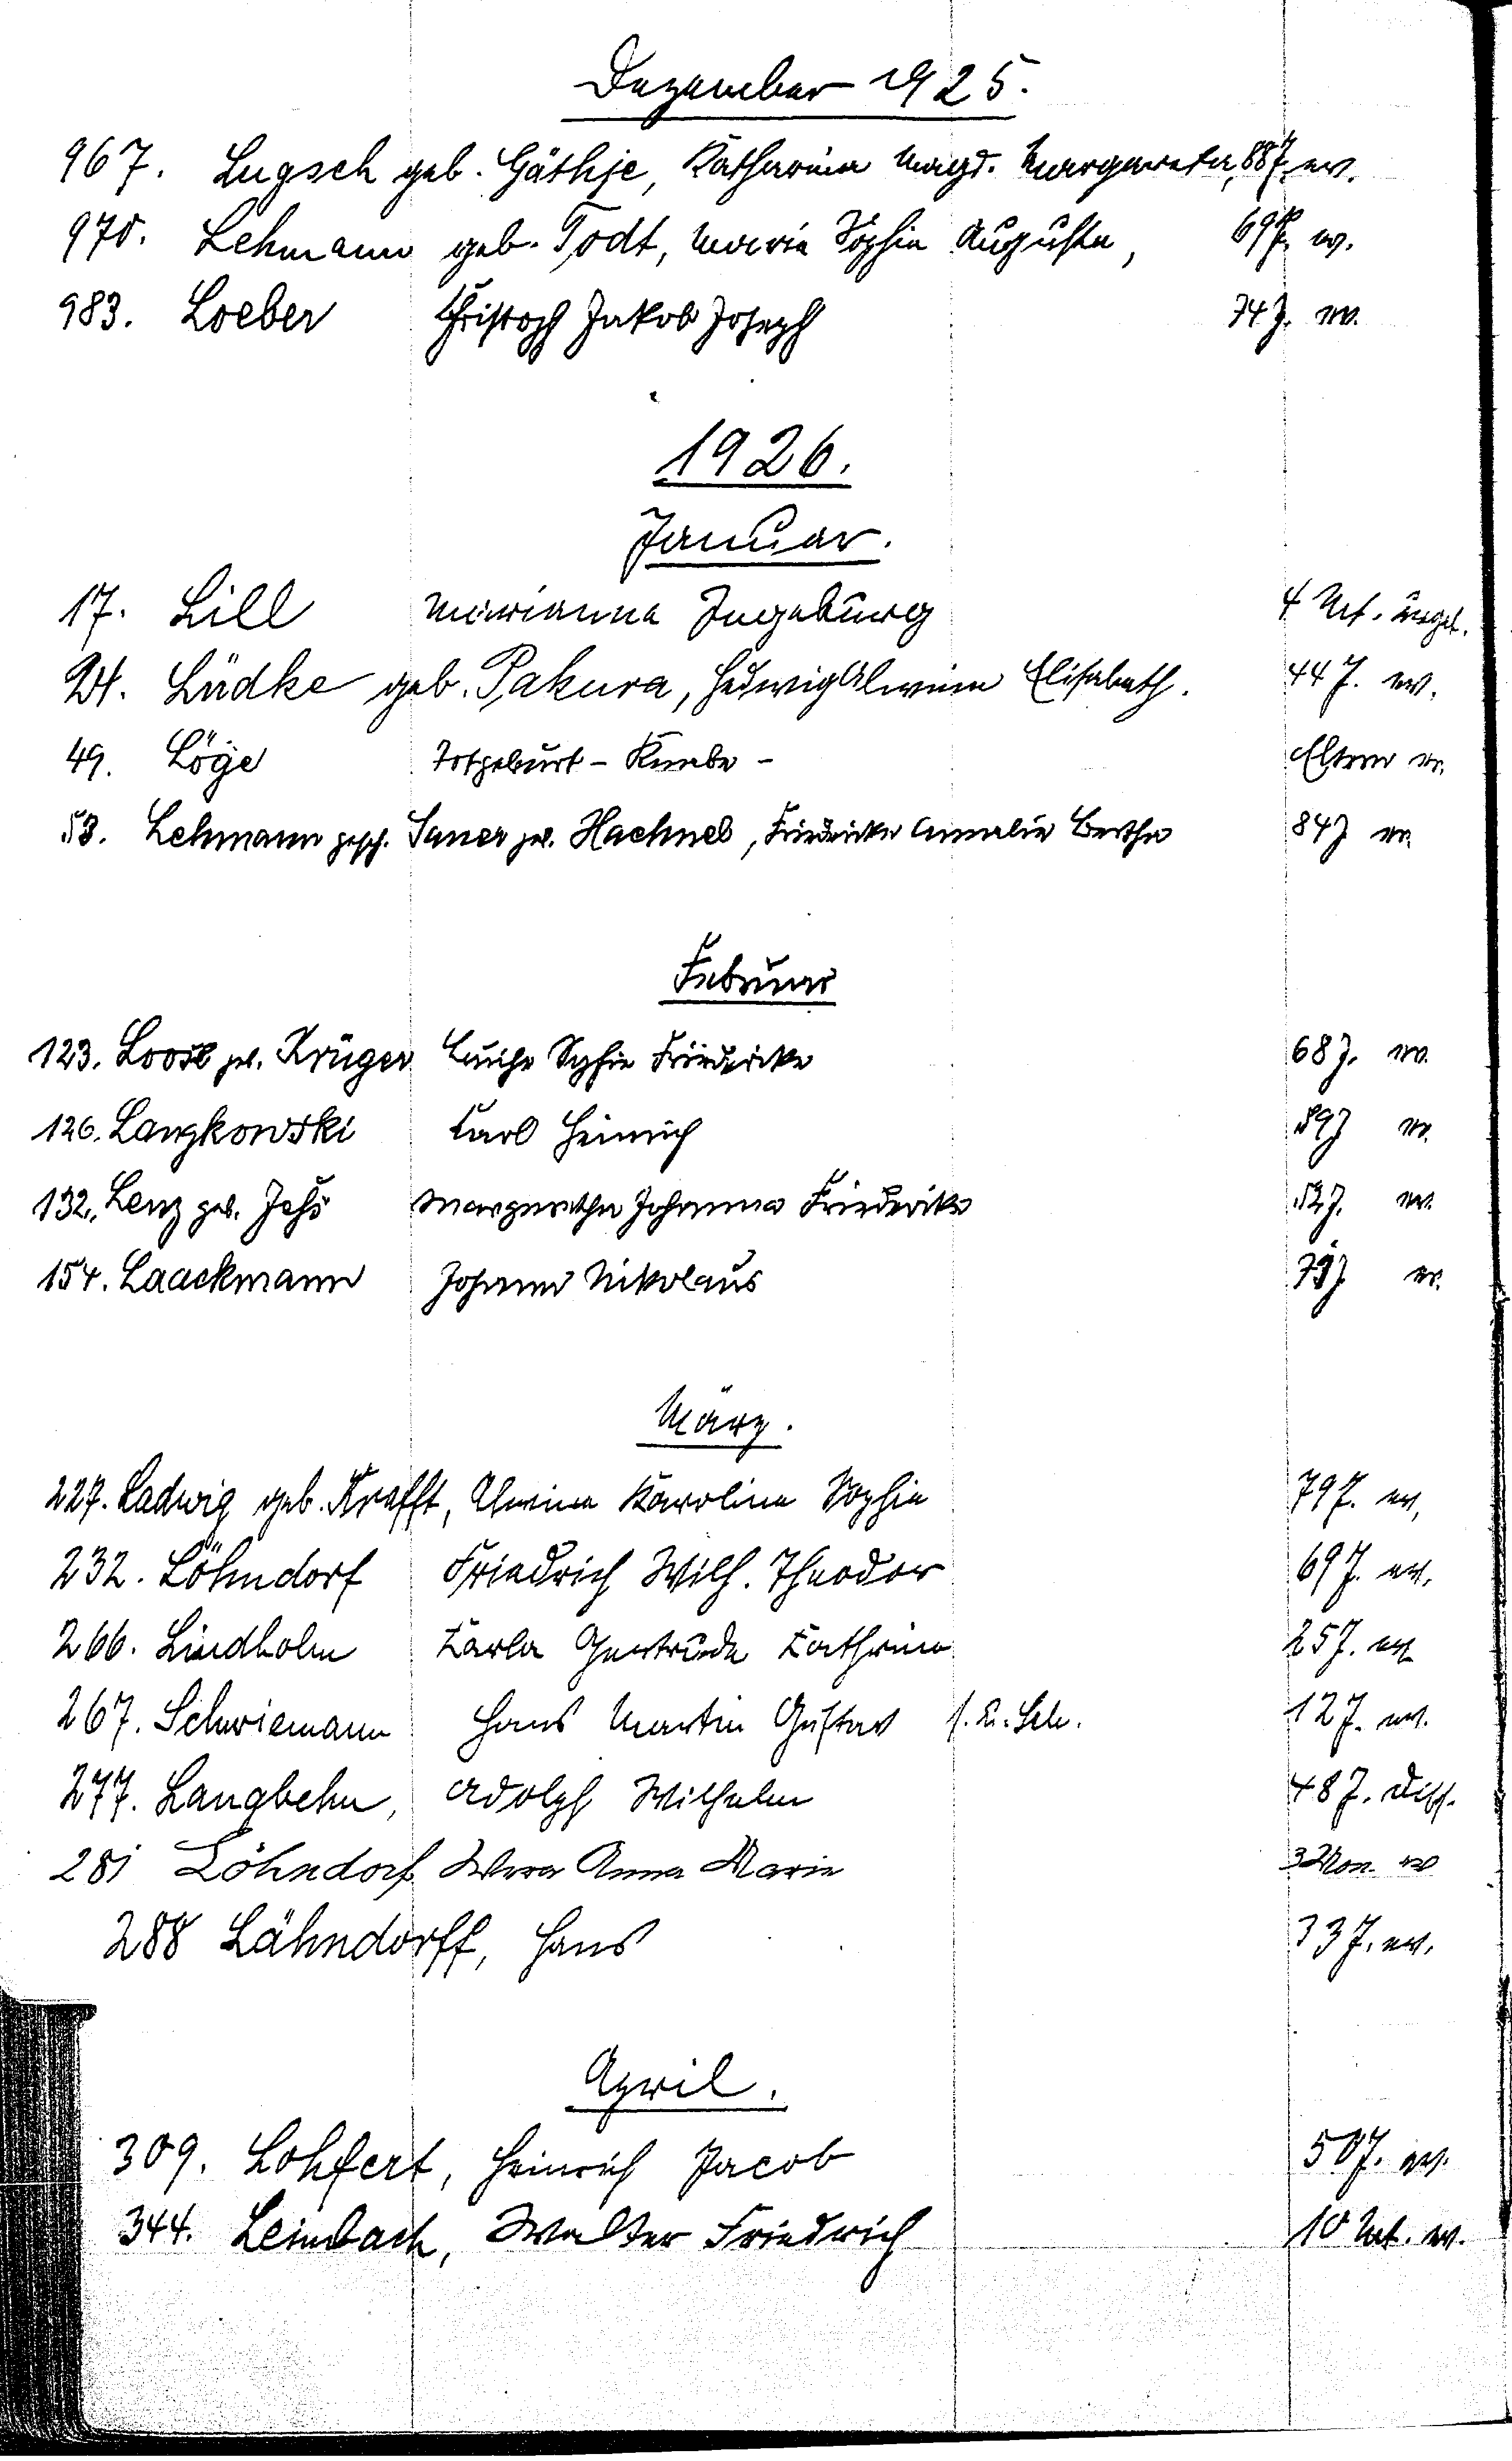 Dezember 1925.
967. Lugsch geb. Gäthje, Katharina Magd. Margareta, 88 J. ev.
970. Lehmann geb. Todt, Maria Sophie Auguste, 69 J. ev.
983. Loeber Christoph Jakob Joseph 74 J. ev.
1926.
Januar.
17. Lill Marianne Ingeburg 4 Mt. ungt.
24. Lüdke geb. Pakura, Hedwig Alwine Elisabeth. 44 J. ev.
49. Löge Totgeburt - Knabe - Eltern ev.
53. Lehmann gesch. Saner geb. Haehnel, Friederike Amalie Bertha 84 J ev.
Februar
123. Loose geb. Krüger Luise Sophie Friederike 68 J. ev.
126. Langkowski Karl Heinrich 59 J ev.
132. Lenz geb. Jehs Margaretha Johanna Friederike 52 J. ev.
154. Laackmann Johann Nikolaus J ev.
März.
227. Ladwig geb. Krafft, Alwine Karoline Sophie 79 J. ev.
232. Löhndorf Friedrich Wilh. Theodor 69 J. ev.
266. Lindholm Karla Gertrude Kathrine 25 J. ev.
267. Schwiemann Hans Martin Gustav s. u. Sch. 12 J. ev.
277. Langbehn, Adolph Wilhelm 48 J. diss.
281 Löhndorf Wera Anna Marie 3 Mon. ev
288 Lähndorff, Hans 33 J. ev.
April.
309. Lohfert, Heinrich Jacob 50 J. ev.
344. Leimbach, Walter Friedrich 10 Mt. ev.